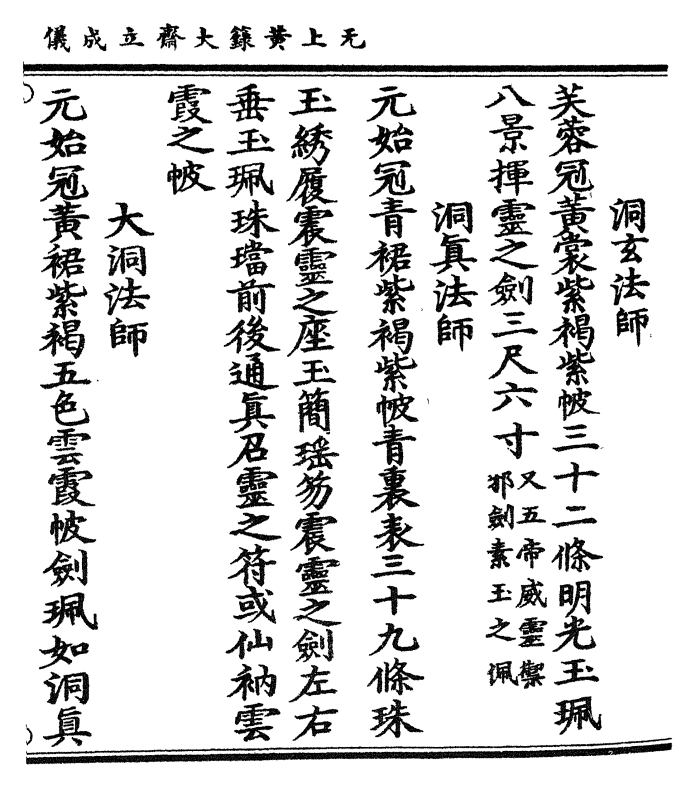 无上黄籙大齋立成儀
洞玄法師
芙蓉冠黃裳紫褐紫帔三十二條明光玉珮
八景揮靈之劍三尺六寸又五帝威靈禦邪劍素玉之佩
洞眞法師
元始冠青裙紫褐紫帔青裏表三十九條珠
玉綉履震靈之座玉簡瑶笏震靈之劍左右
垂玉珮珠璫前後通眞召靈之符或仙衲雲
霞之帔
大洞法師
元始冠黃裙紫褐五色雲霞帔劍珮如洞眞